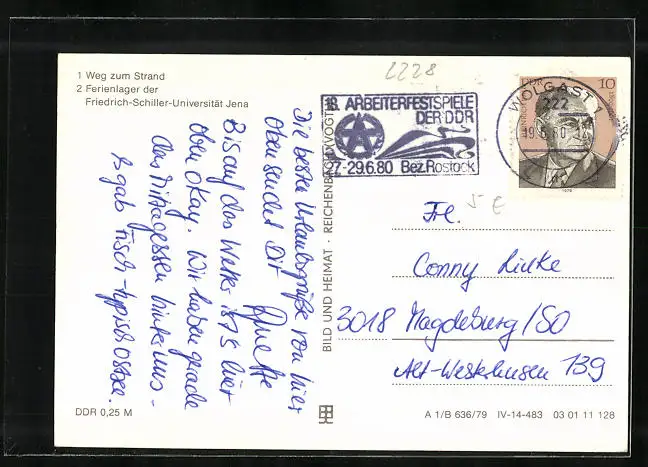 2228
1 Weg zum Strand
2 Ferienlager der
Friedrich-Schiller-Universität Jena
Die besten Urlaubsgrüße von hier
oben sendet Dir Anette
Bis auf das Wetter ist's hier
oben okay. Wir haben gerade
das Mittagessen hinter uns -
Es gab Fisch - typisch Ostsee.
DDR 0,25 M
BILD UND HEIMAT · REICHENBACH (VOGTL)
18. ARBEITERFESTSPIELE
DER DDR
27.-29.6.80 Bez. Rostock
WOLGAST 1
222
DDR 10
1979
5 €
Frl.
Conny Linke
3018 Magdeburg/SO
Alt-Westerhüsen 139
A 1/B 636/79 IV-14-483 03 01 11 128